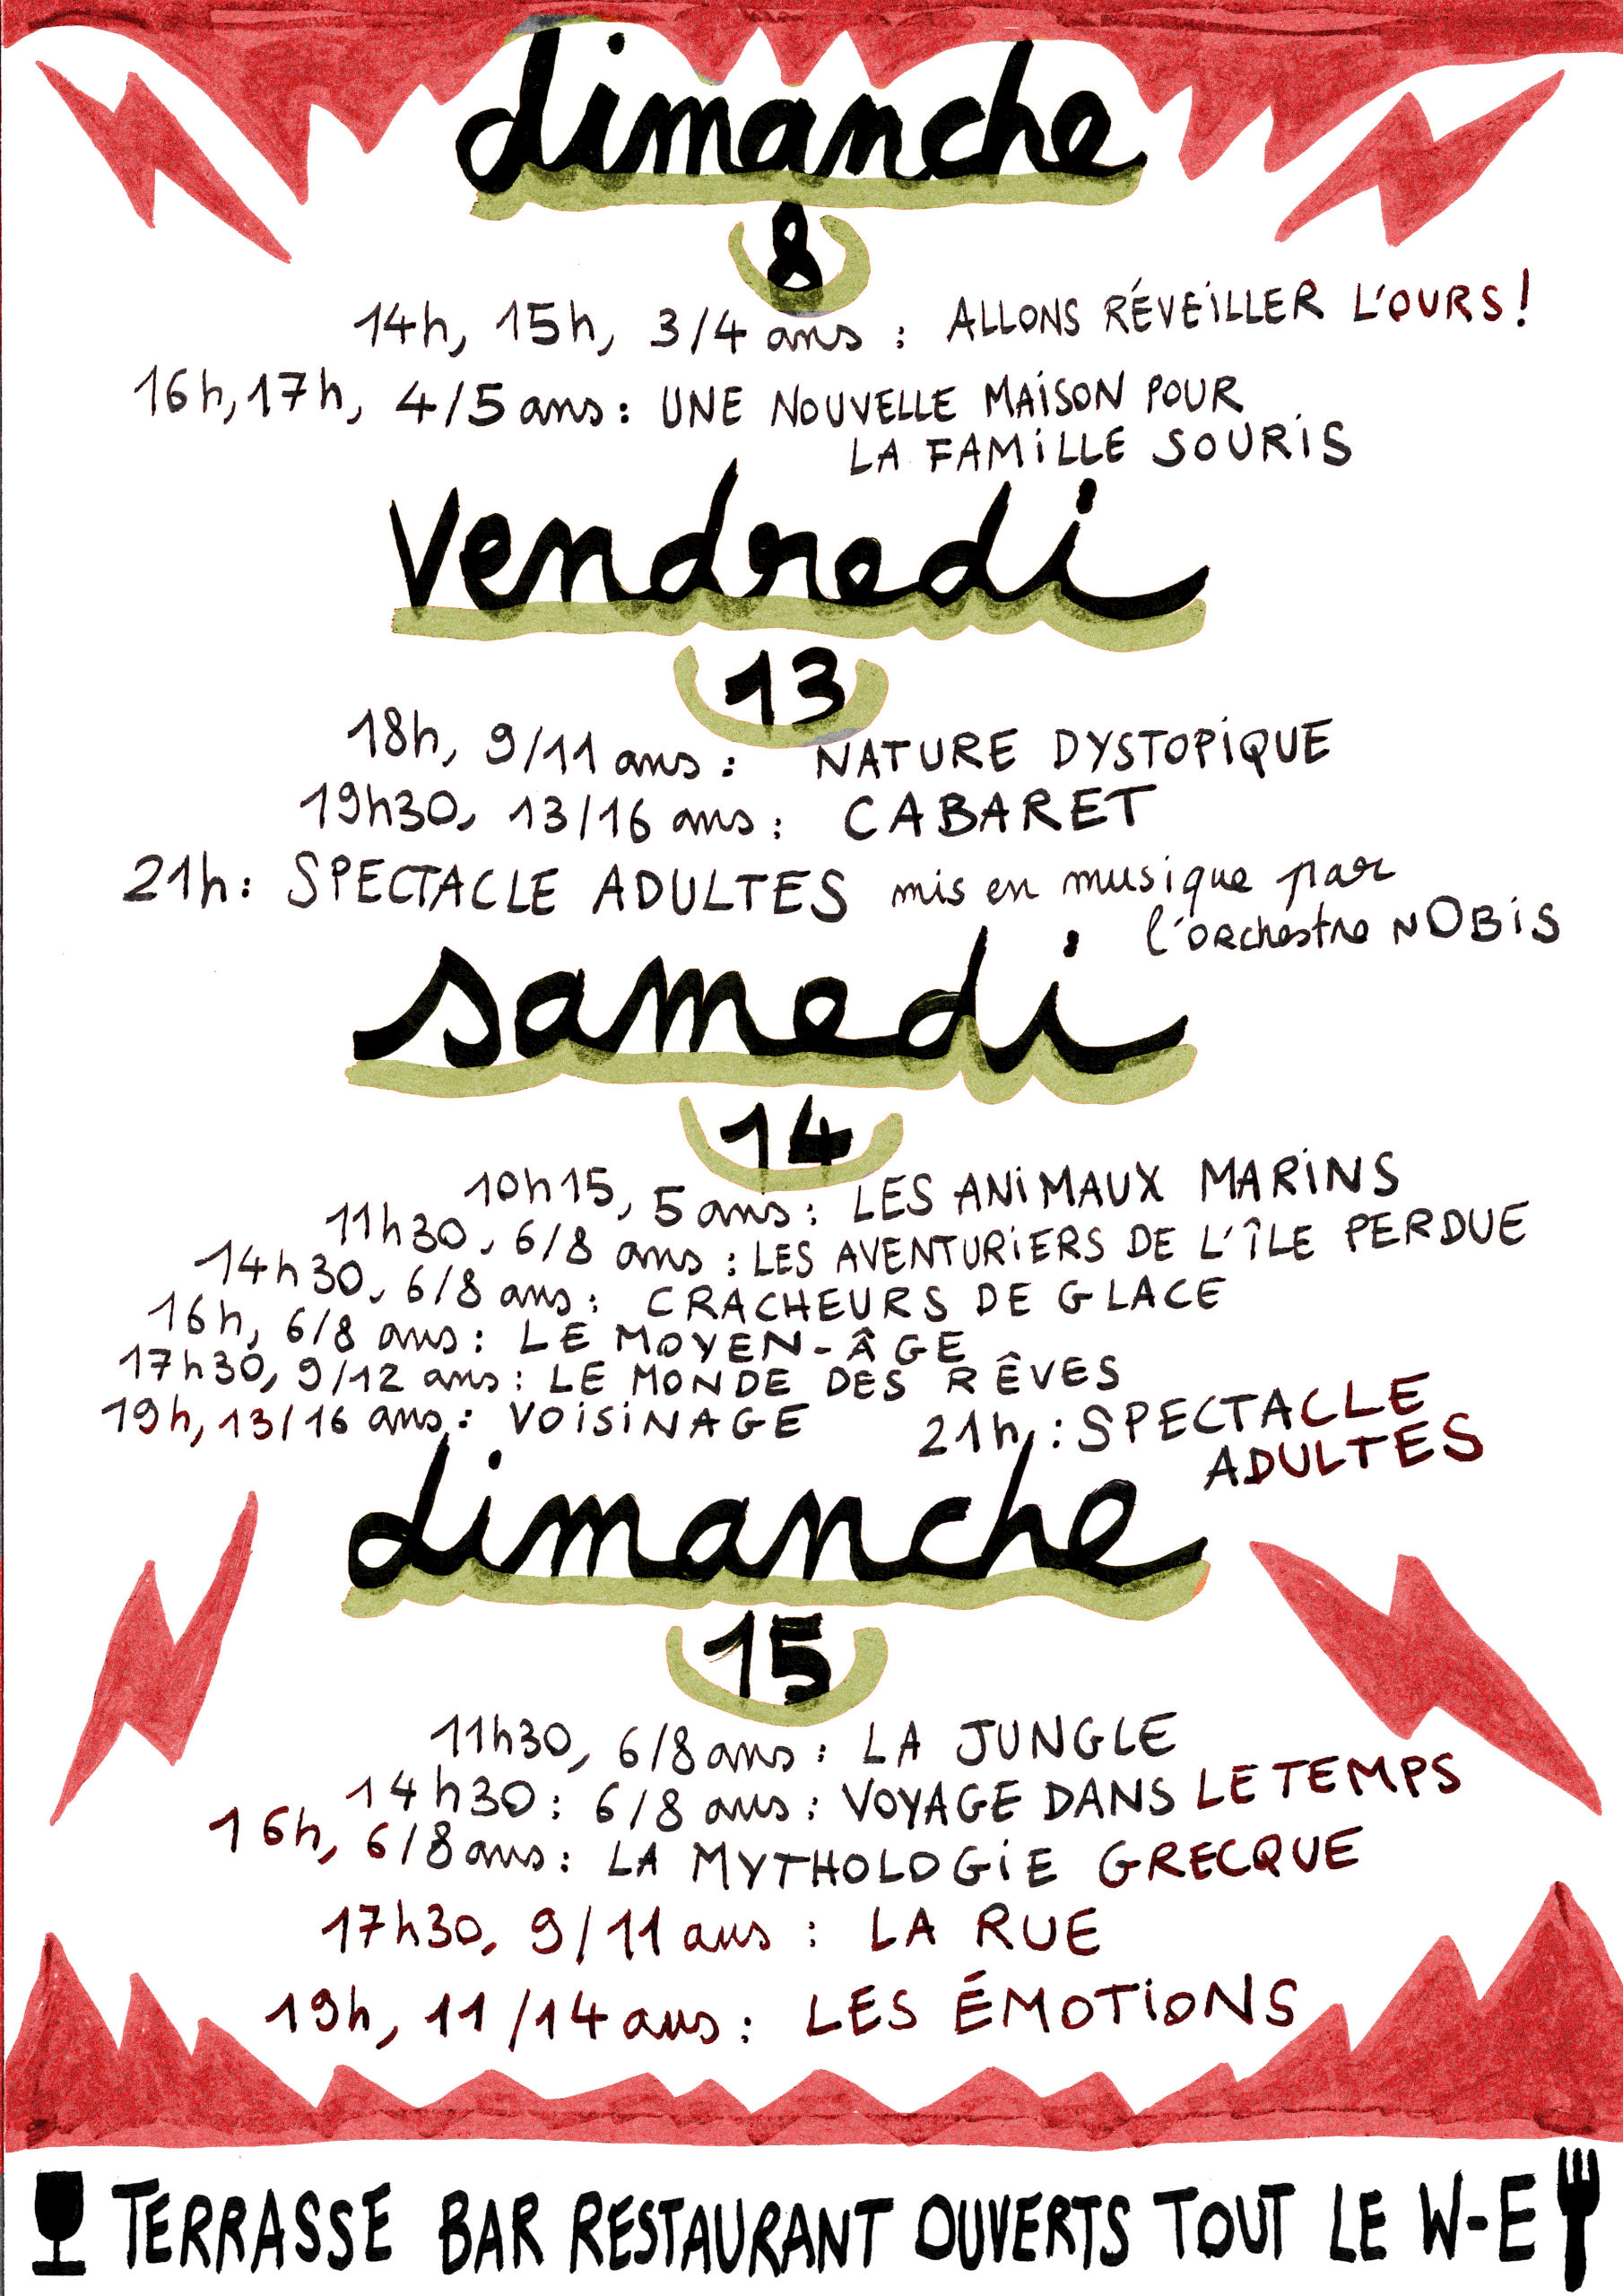 dimanche
8
14h, 15h, 3/4 ans : ALLONS RÉVEILLER L'OURS !
16h, 17h, 4/5 ans : UNE NOUVELLE MAISON POUR
LA FAMILLE SOURIS
vendredi
13
18h, 9/11 ans : NATURE DYSTOPIQUE
19h30, 13/16 ans : CABARET
21h : SPECTACLE ADULTES mis en musique par
l'orchestre NOBIS
samedi
14
10h15, 5 ans : LES ANIMAUX MARINS
11h30, 6/8 ans : LES AVENTURIERS DE L'ÎLE PERDUE
14h30, 6/8 ans : CRACHEURS DE GLACE
16h, 6/8 ans : LE MOYEN-ÂGE
17h30, 9/12 ans : LE MONDE DES RÊVES
19h, 13/16 ans : VOISINAGE
21h : SPECTACLE
ADULTES
dimanche
15
11h30, 6/8 ans : LA JUNGLE
14h30 : 6/8 ans : VOYAGE DANS LE TEMPS
16h, 6/8 ans : LA MYTHOLOGIE GRECQUE
17h30, 9/11 ans : LA RUE
19h, 11/14 ans : LES ÉMOTIONS
TERRASSE BAR RESTAURANT OUVERTS TOUT LE W-E